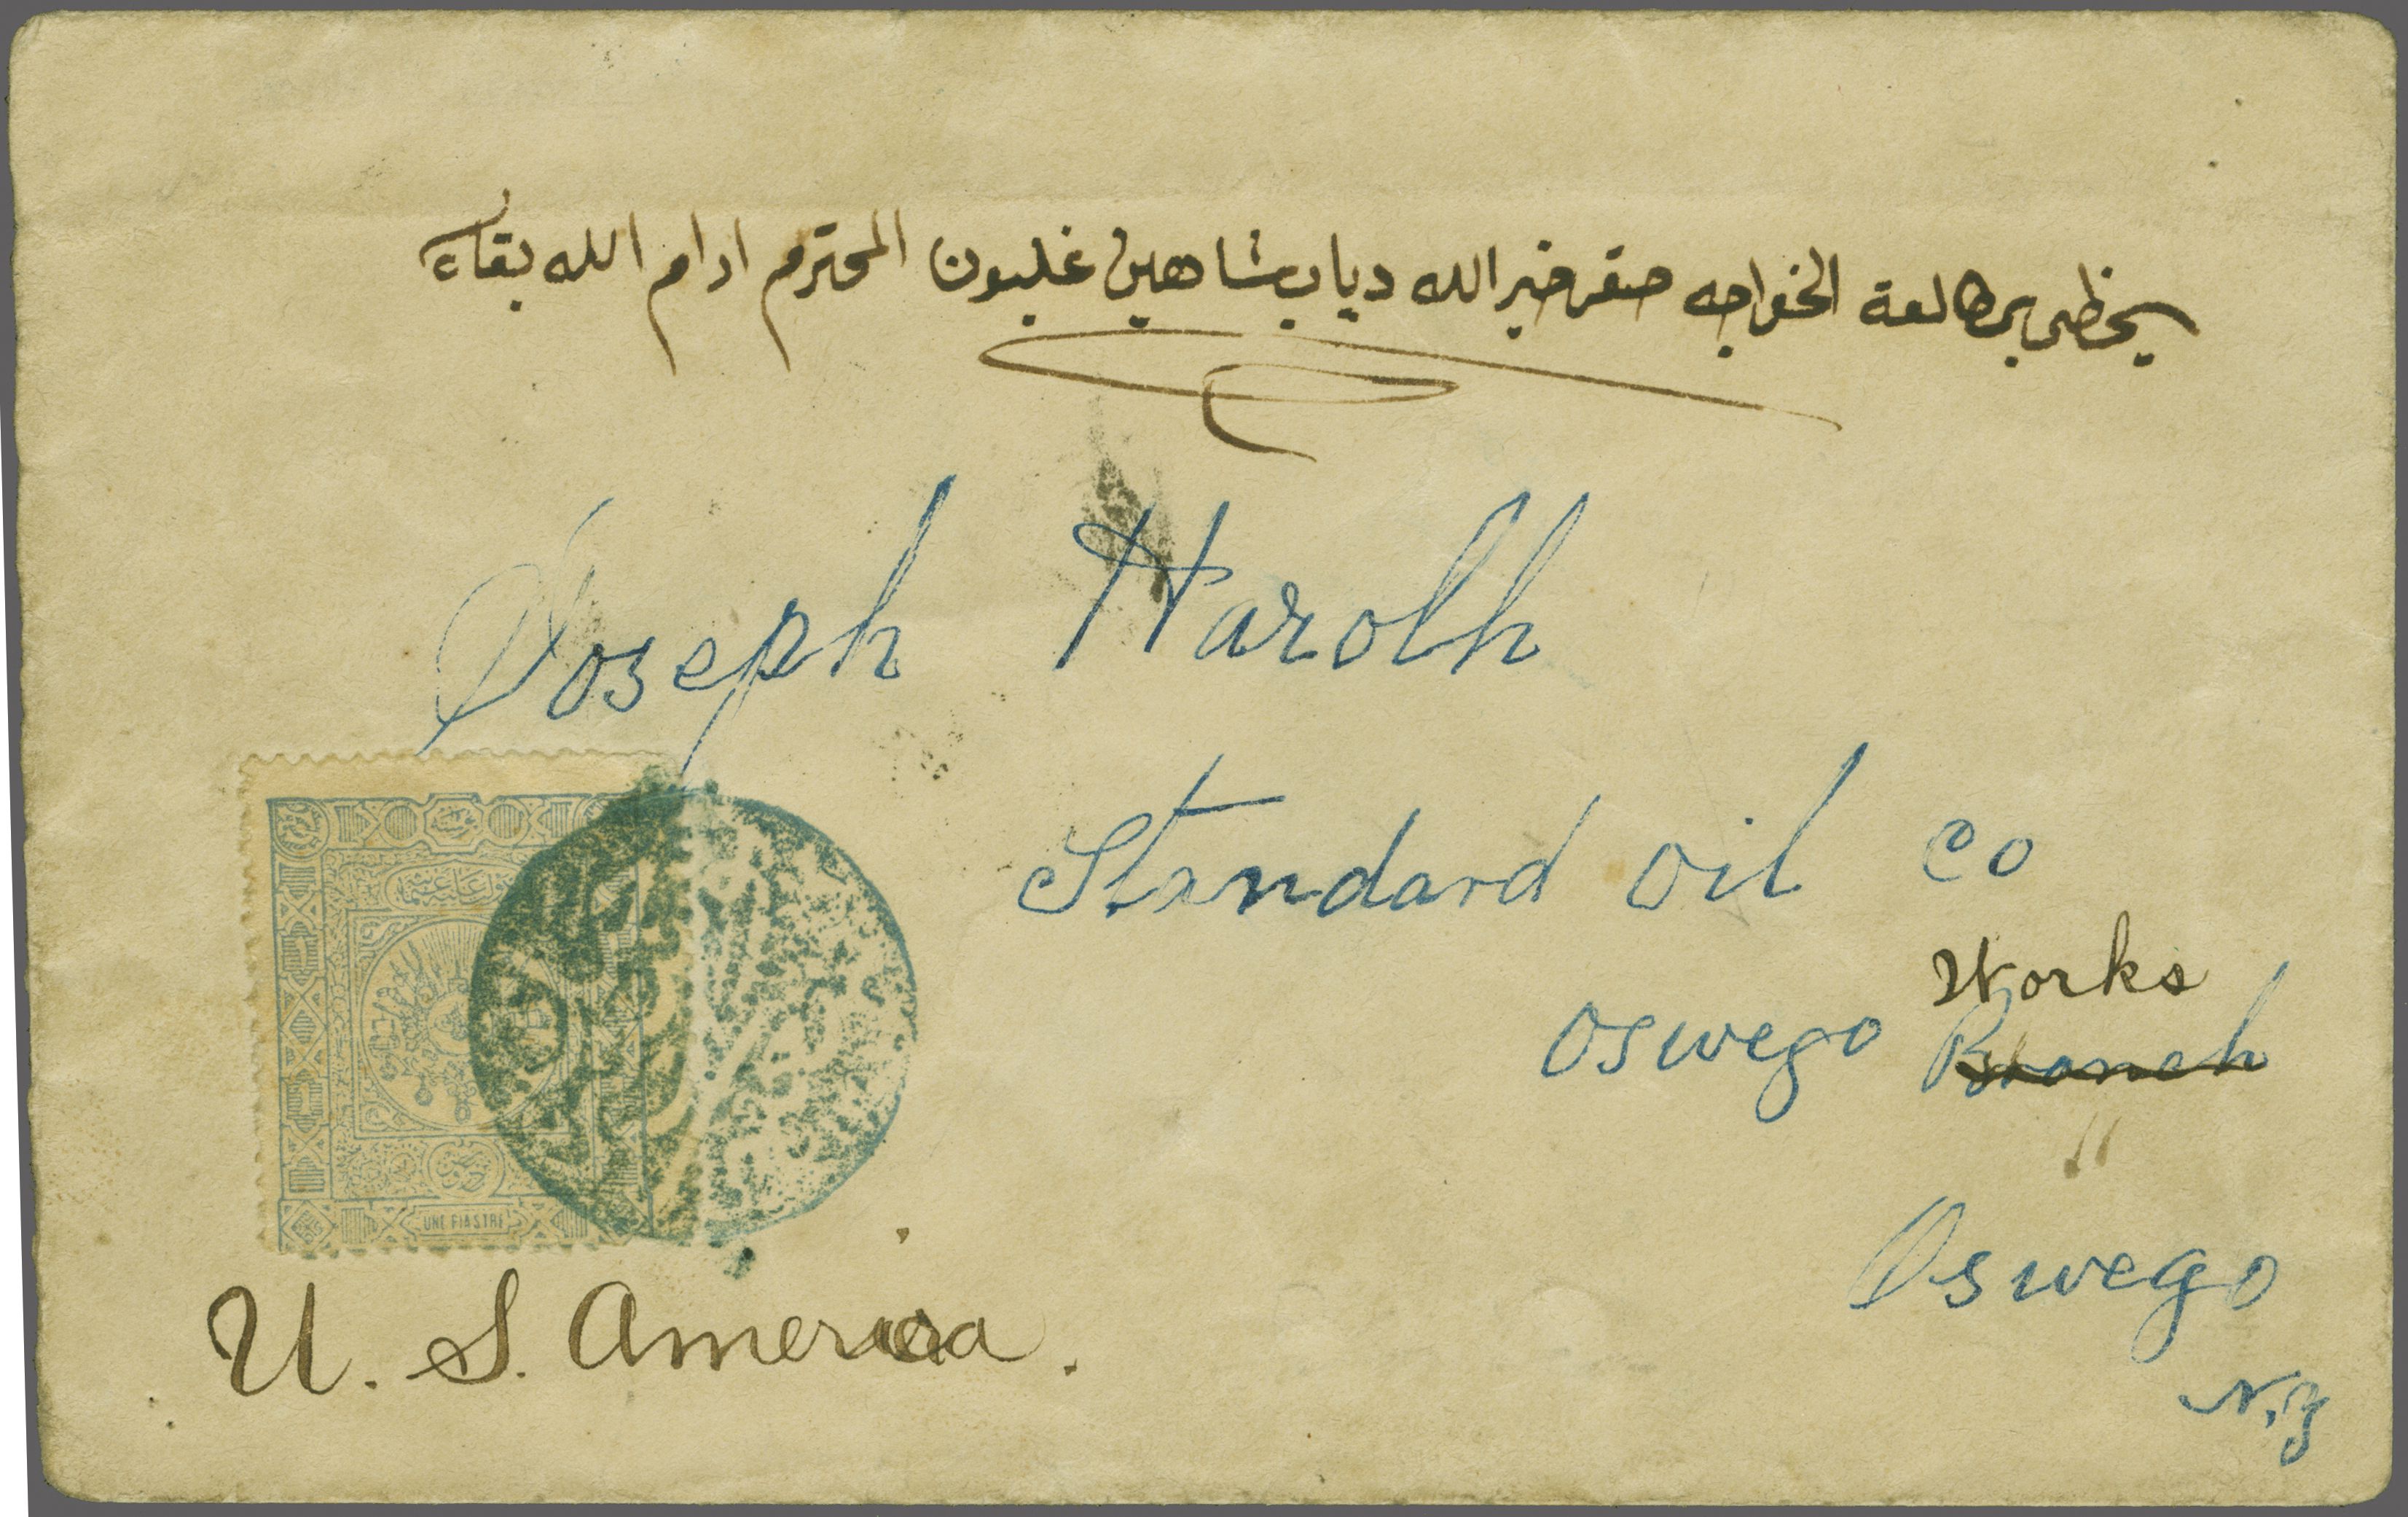 يحظى بمطالعة الخواجه صقر خير الله دياب شاهين غلبون المحترم ادام الله بقاه
Joseph Harolh
Standard oil co
Works
Oswego Branch
"
Oswego
N.Y
UNE PIASTRE
U. S. America.